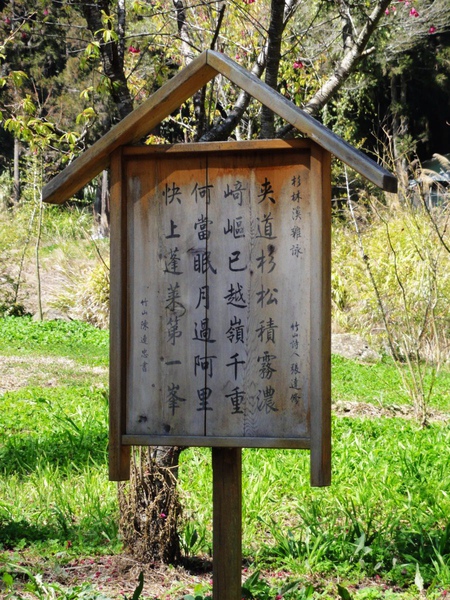 杉林溪雜詠
竹山詩人 張達修
夾道杉松積霧濃
崎嶇已越嶺千重
何當眠月過阿里
快上蓬萊第一峯
竹山 陳達忠書